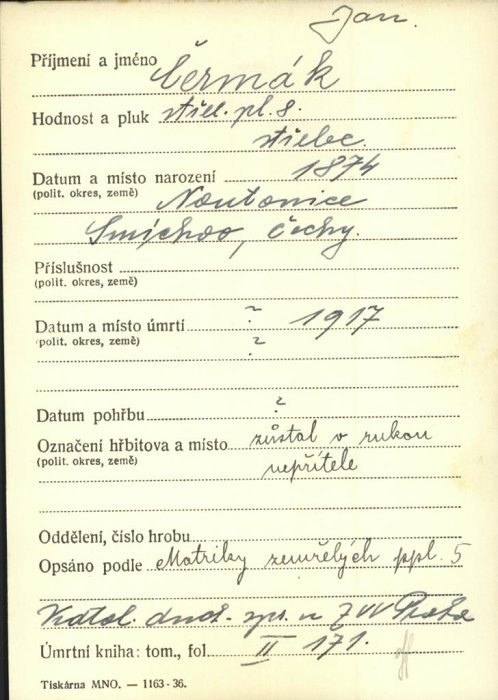 Jan.
Příjmení a jméno Čermák
Hodnost a pluk střel. pl. 8.
střelec.
Datum a místo narození 1874
(polit. okres, země) Noutonice
Smíchov, Čechy.
Příslušnost
(polit. okres, země)
Datum a místo úmrtí ? 1917
(polit. okres, země) ?
Datum pohřbu ?
Označení hřbitova a místo zůstal v rukou
(polit. okres, země) nepřítele
Oddělení, číslo hrobu
Opsáno podle Matriky zemřelých ppl. 5
Katol. duch. spr. u ZVV Praha
Úmrtní kniha: tom., fol. II 171.
Tiskárna MNO. — 1163-36.